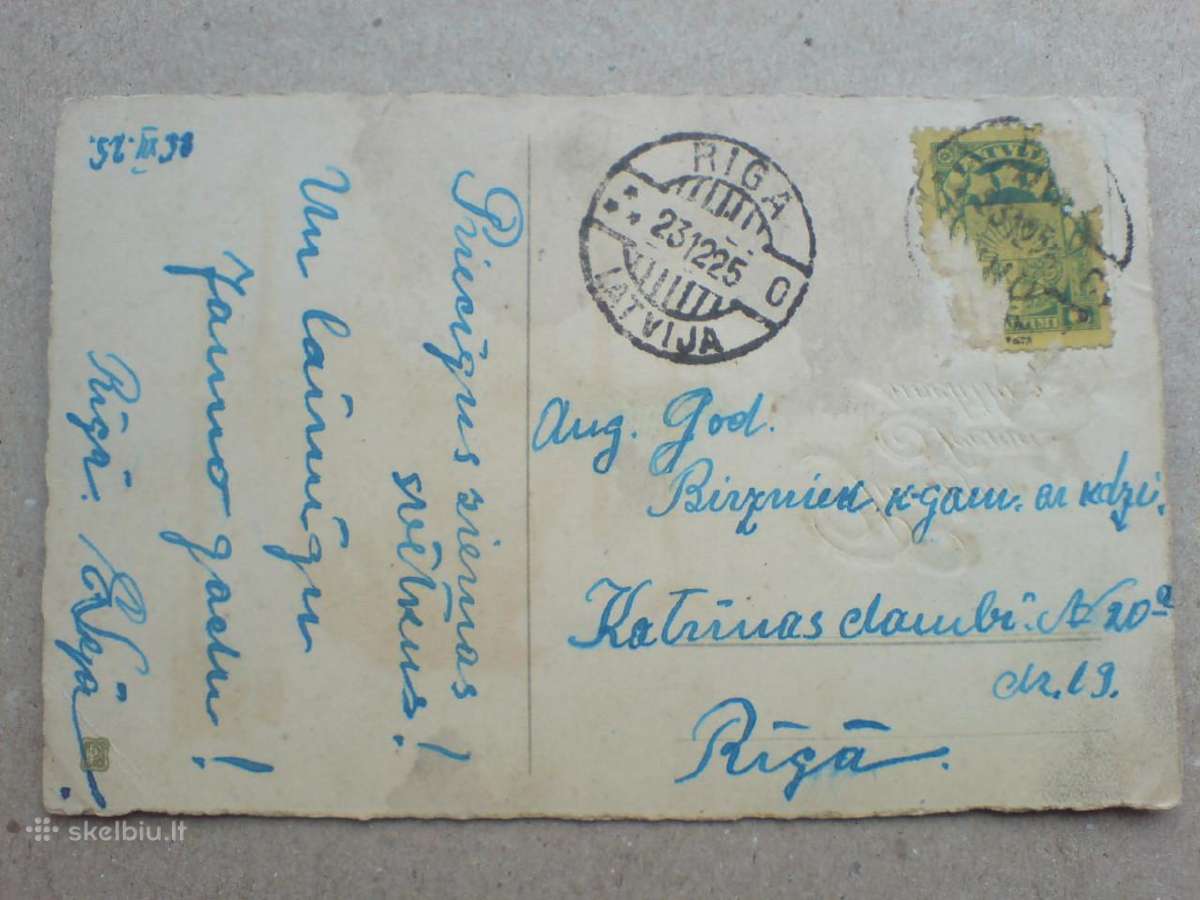 Priecīgus ziemas
svētkus!
Un laimīgu
Jauno gadu!
Rīgā.
RIGA
23 12 25
C
LATVIJA
LATVI
Aug. God.
Birzniek k-gam. ar kdzi.
Katrīnas dambī. N 20a
dz. 19.
Rīgā.
skelbiu.lt